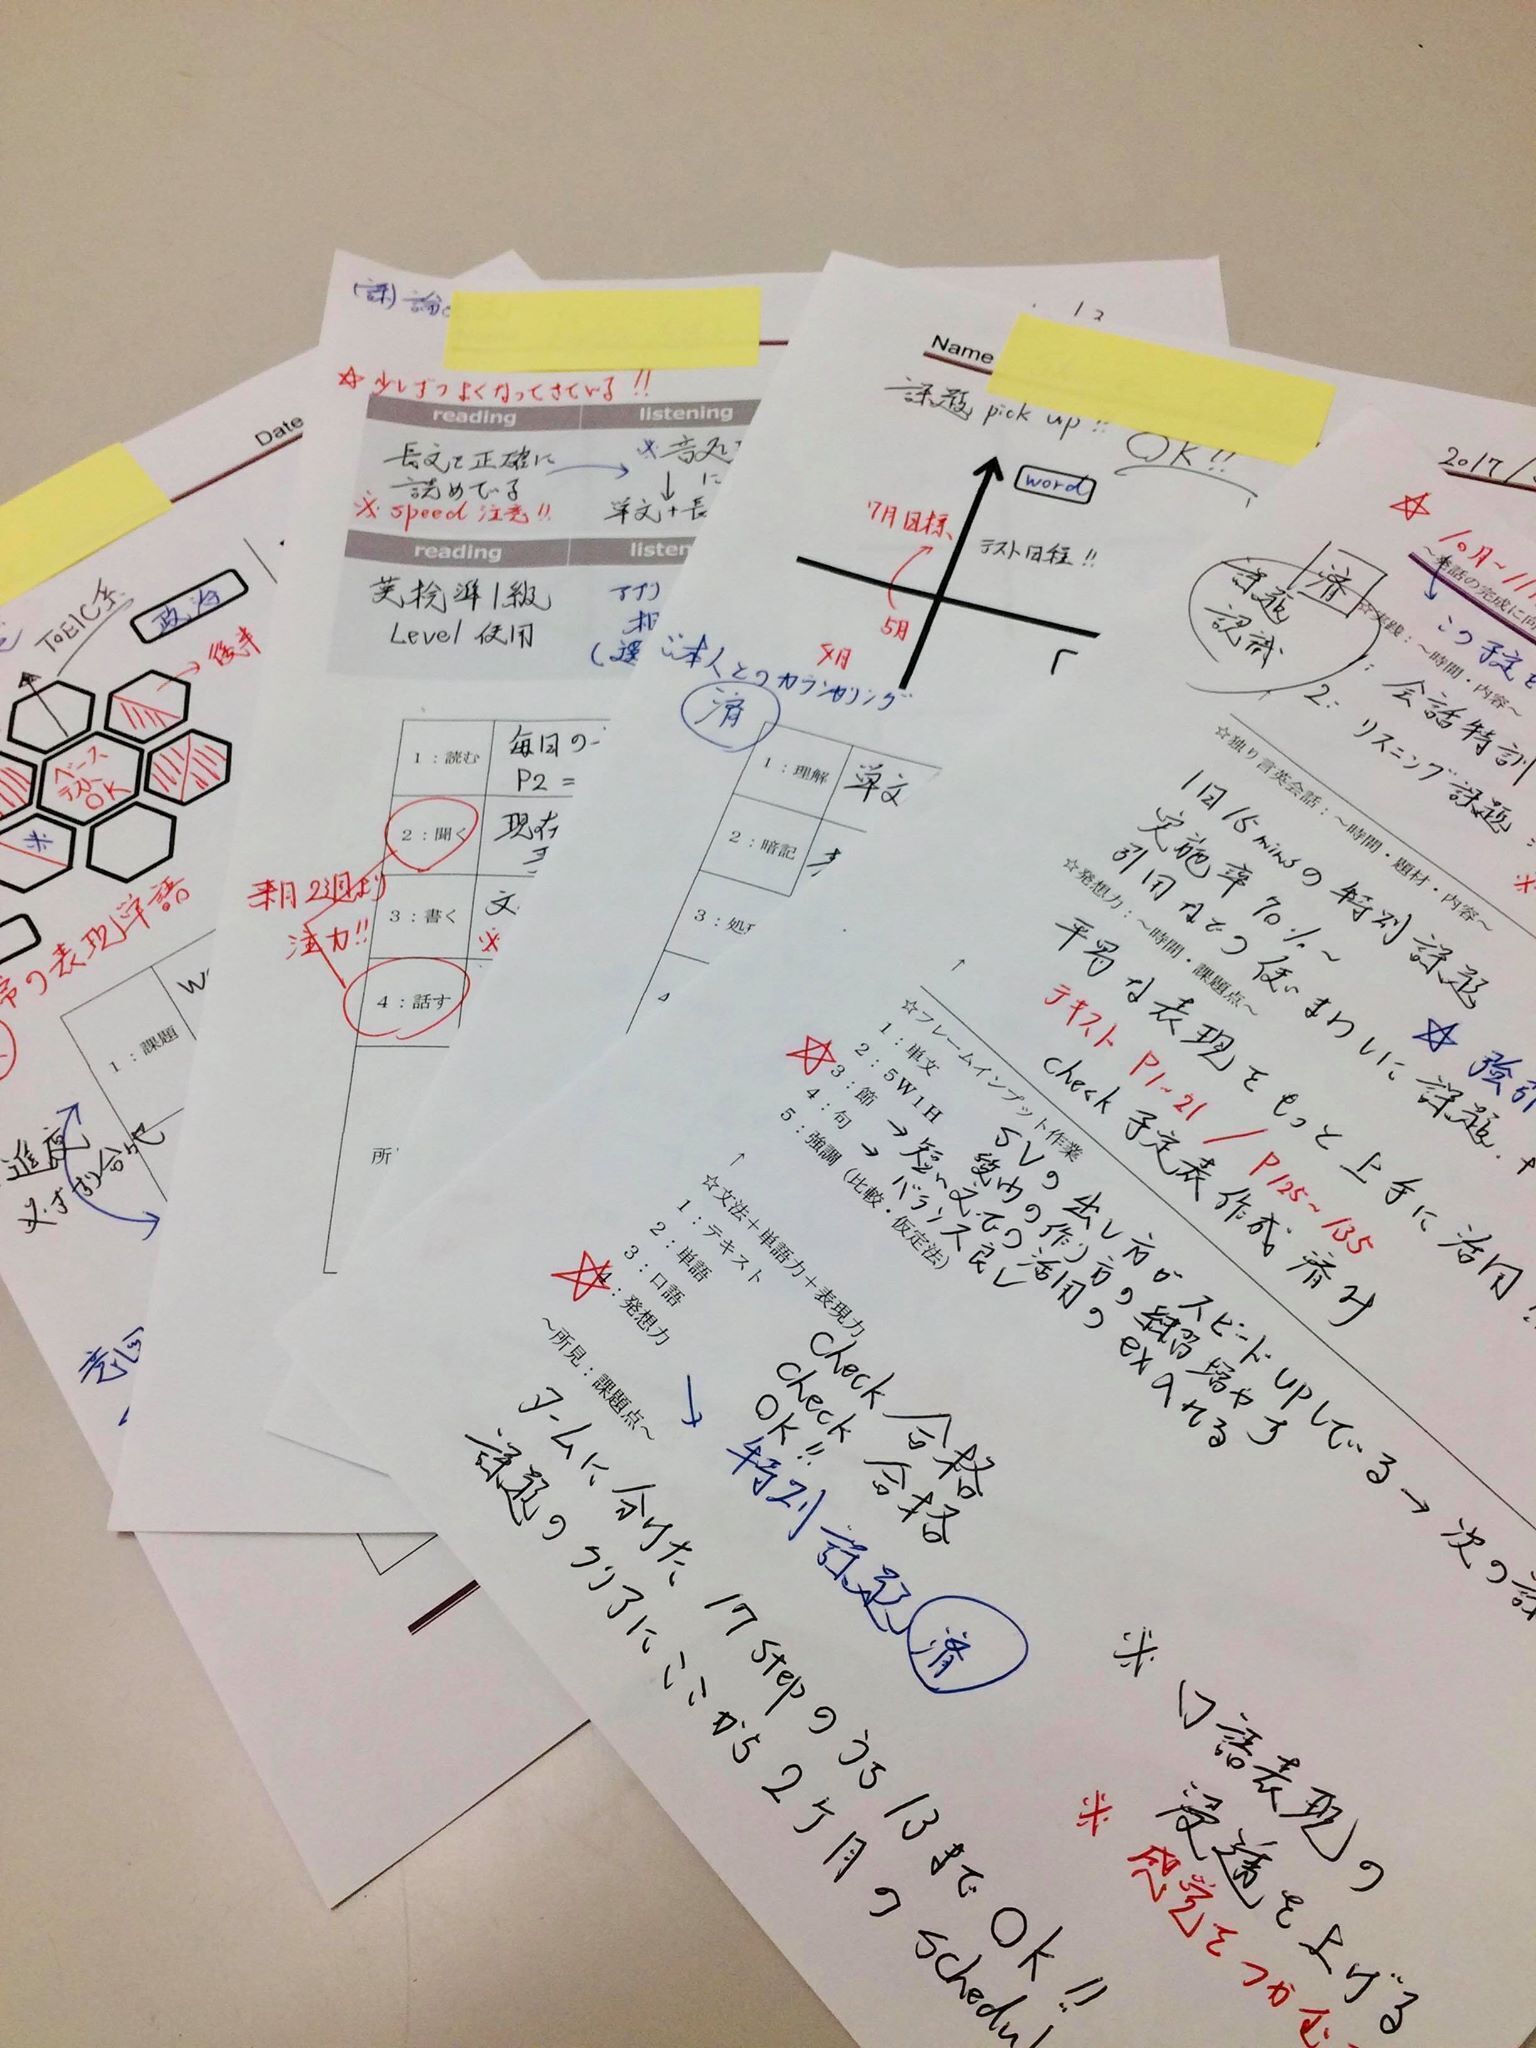 Date
TOEIC系
政治
後半
ベース
テストOK
※
1：課題
進度
必ずお伝え
☆少しずつよくなってきている!!
reading
listening
長文を正確に
読めている
※speed注意!!
単文+長
reading
listen
英検準1級
Level 使用
1：読む
毎日の
P2 =
2：聞く
現在
3：書く
文
※
4：話す
来月2週目より
注力!!
所
12
Name
課題 pick up!!
OK!!
word
7月目標
テスト日程!!
5月
4月
ご本人とのカウンセリング
済
1：理解
単文
2：暗記
3：処
2017/
☆10月〜11
〜発話の完成に向
この予定を
課題
認識
済
☆実践：〜時間・内容〜
1：会話特訓
2：リスニング課題
☆独り言英会話：〜時間・題材・内容〜
1回15minsの特別課題
実施率70%〜
引用などの使いまわしに課題
☆強引
☆発想力：〜時間・課題点〜
平易な表現をもっと上手に活用
テキスト P1~21 / P125~135
check 予定表作成済み
↑
☆フレームインプット作業
1：単文
2：5W1H
3：節
4：句
5：強調（比較・仮定法）
SVの出し方がスピードupしている→次の課
の作り方の練習増やす
→短い文での活用のex入れる
→バランス良し
↑
☆文法＋単語力＋表現力
1：テキスト
check 合格
2：単語
check 合格
3：口語
OK!!
☆4：発想力
→特別課題 済
〜所見：課題点〜
タームに分けた17stepのうち13までOK!!
課題のクリアにここから2ヶ月のschedul
※口語表現の
浸透を上げる
※感覚をつかむ